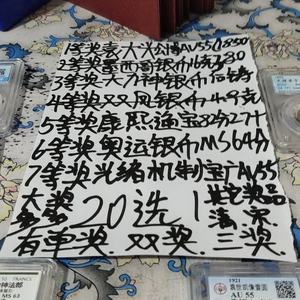 1等奖袁大头公博AV55 1850
2等奖墨西哥银币
3等奖大力神银币
4等奖双凤银币
5等奖康熙通宝82分27
6等奖奥运银币MS64分
7等奖光绪机制宝广AV55
大奖
多多
20选1
其它奖品
满
有单奖 双奖 三奖
50 FRANCS
大力神法郎
MS 63
1921
袁世凯像壹圆
AU 55